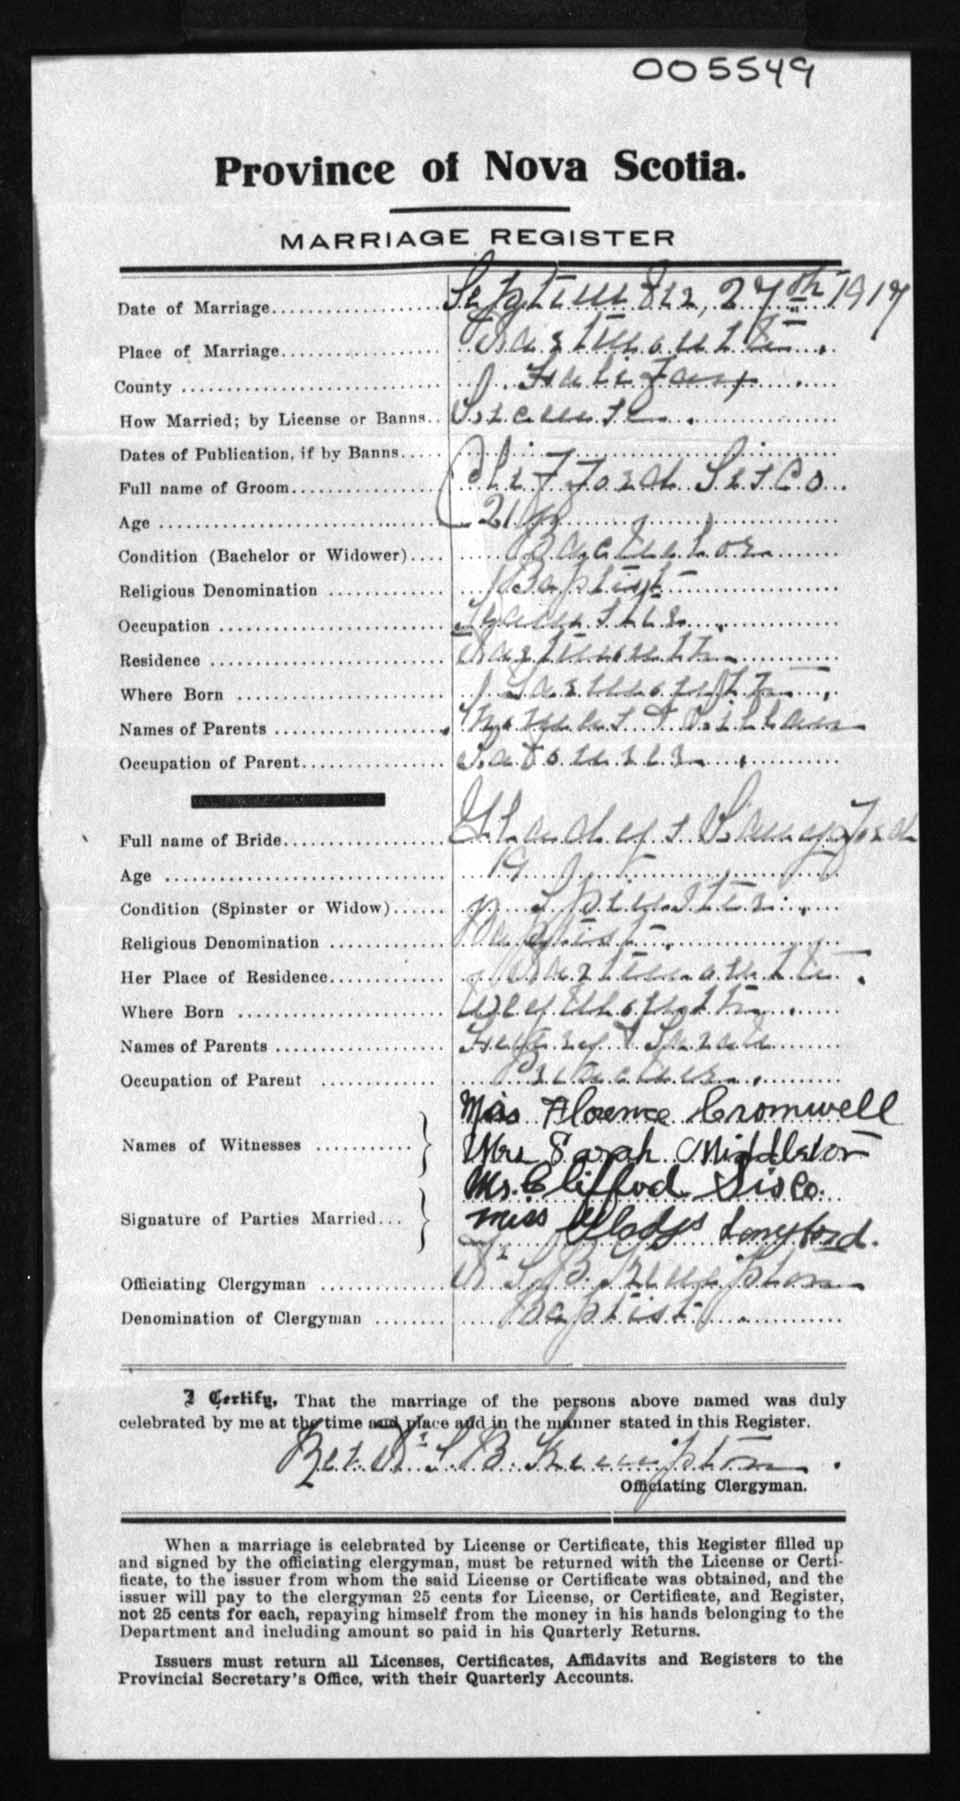 005549
Province of Nova Scotia.
MARRIAGE REGISTER
Date of Marriage September, 27th 1917
Place of Marriage Dartmouth.
County Halifax
How Married; by License or Banns License.
Dates of Publication, if by Banns
Full name of Groom Clifford Sisco
Age 21
Condition (Bachelor or Widower) Bachelor
Religious Denomination Baptist
Occupation
Residence Dartmouth
Where Born Yarmouth.
Names of Parents &
Occupation of Parent Labourer.
Full name of Bride Gladys Langford
Age 19
Condition (Spinster or Widow) Spinster.
Religious Denomination Baptist.
Her Place of Residence Dartmouth.
Where Born Weymouth.
Names of Parents Henry & Sarah
Occupation of Parent Preacher.
Names of Witnesses Miss Florence Cromwell
Mrs Sarah Middleton
Signature of Parties Married Mr. Cliffod Sisco.
miss Gladys Langford.
Officiating Clergyman Dr. S. B. Kempton
Denomination of Clergyman Baptist.
I Certify, That the marriage of the persons above named was duly
celebrated by me at the time and place and in the manner stated in this Register.
Rev Dr. S. B. Kempton.
Officiating Clergyman.
When a marriage is celebrated by License or Certificate, this Register filled up
and signed by the officiating clergyman, must be returned with the License or Certi-
ficate, to the issuer from whom the said License or Certificate was obtained, and the
issuer will pay to the clergyman 25 cents for License, or Certificate, and Register,
not 25 cents for each, repaying himself from the money in his hands belonging to the
Department and including amount so paid in his Quarterly Returns.
Issuers must return all Licenses, Certificates, Affidavits and Registers to the
Provincial Secretary's Office, with their Quarterly Accounts.